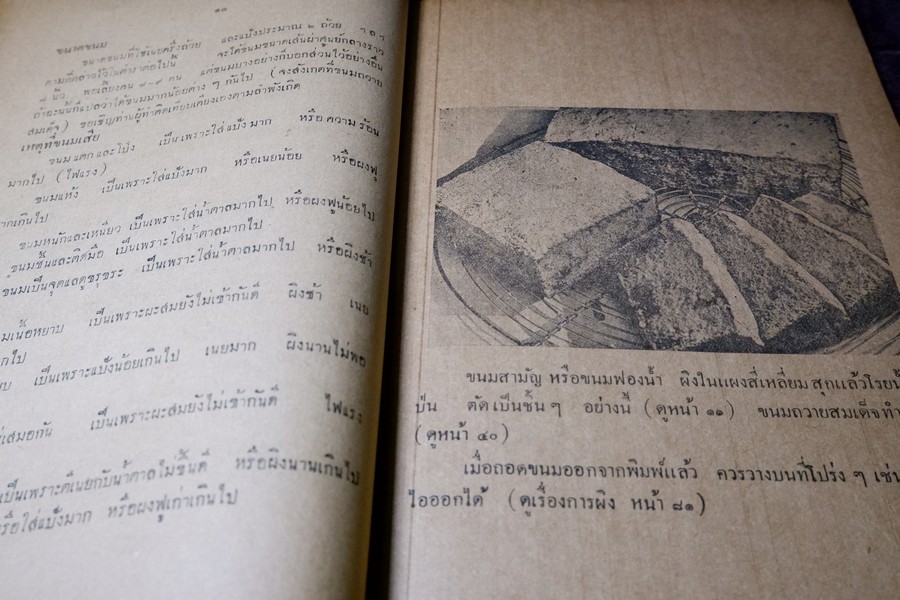 ๑๐
ขนาดขนม
ขนาดขนมที่ใช้เนยครึ่งถ้วย และแป้งประมาณ ๒ ถ้วย
ตามที่กล่าวไว้ในตำราต่อไปนี้ จะได้ขนมขนาดเส้นผ่าศูนย์กลางราว
นิ้ว พอเลี้ยงคน คน แต่ขนมบางอย่างก็บอกส่วนไว้อย่างอื่น
ถ้าฉะนั้นก็แปลว่าได้ขนมมากน้อยต่าง ๆ กันไป (จงสังเกตที่ขนมถวาย
สมเด็จ) ขอเชิญท่านผู้ทำคิดเทียบเคียงเองตามลำพังเถิด
เหตุที่ขนมเสีย
ขนมแตกและโป่ง เป็นเพราะใส่แป้งมาก หรือความร้อน
มากไป (ไฟแรง)
ขนมแห้ง เป็นเพราะใส่แป้งมาก หรือเนยน้อย หรือผงฟู
ากเกินไป
ขนมหนักและเหนียว เป็นเพราะใส่น้ำตาลมากไป หรือผงฟูน้อยไป
ขนมชื้นและติดมือ เป็นเพราะใส่น้ำตาลมากไป
ขนมเป็นจุดแลดูขรุขระ เป็นเพราะใส่น้ำตาลมากไป หรือผิงช้า
มเนื้อหยาบ เป็นเพราะผสมยังไม่เข้ากันดี ผิงช้า เนย
ากไป
เป็นเพราะแป้งน้อยเกินไป เนยมาก ผิงนานไม่พอ
เสมอกัน เป็นเพราะผสมยังไม่เข้ากันดี ไฟแรง
เป็นเพราะตีเนยกับน้ำตาลไม่ขึ้นดี หรือผิงนานเกินไป
รือใส่แป้งมาก หรือผงฟูเก่าเกินไป
ขนมสามัญ หรือขนมฟองน้ำ ผิงในแผงสี่เหลี่ยม สุกแล้วโรยน้
ป่น ตัดเป็นชิ้น ๆ อย่างนี้ (ดูหน้า ๑๑) ขนมถวายสมเด็จทำ
(ดูหน้า ๔๐)
เมื่อถอดขนมออกจากพิมพ์แล้ว ควรวางบนที่โปร่ง ๆ เช่น
ไอออกได้ (ดูเรื่องการผิง หน้า ๘๑)